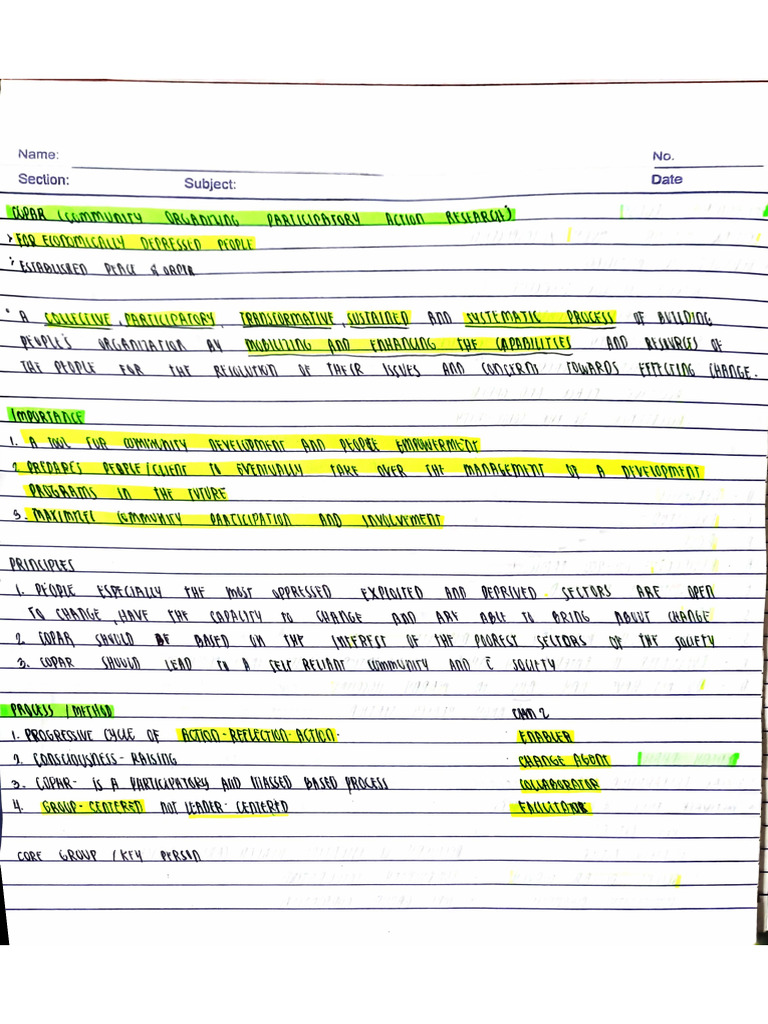 Name:
No.
Section:
Subject:
Date
COPAR (COMMUNITY ORGANIZING PARTICIPATORY ACTION RESEARCH)
> FOR ECONOMICALLY DEPRESSED PEOPLE
ESTABLISHED PEACE & ORDER
• A COLLECTIVE, PARTICIPATORY, TRANSFORMATIVE, SUSTAINED AND SYSTEMATIC PROCESS OF BUILDING
PEOPLE'S ORGANIZATION BY MOBILIZING AND ENHANCING THE CAPABILITIES AND RESOURCES OF
THE PEOPLE FOR THE RESOLUTION OF THEIR ISSUES AND CONCERNS TOWARDS EFFECTING CHANGE.
IMPORTANCE
1. A TOOL FOR COMMUNITY DEVELOPMENT AND PEOPLE EMPOWERMENT
2. PREPARES PEOPLE/CLIENT TO EVENTUALLY TAKE OVER THE MANAGEMENT OF A DEVELOPMENT
PROGRAMS IN THE FUTURE
3. MAXIMIZES COMMUNITY PARTICIPATION AND INVOLVEMENT
PRINCIPLES
1. PEOPLE ESPECIALLY THE MOST OPPRESSED EXPLOITED AND DEPRIVED SECTORS ARE OPEN
TO CHANGE, HAVE THE CAPACITY TO CHANGE AND ARE ABLE TO BRING ABOUT CHANGE
2. COPAR SHOULD BE BASED ON THE INTEREST OF THE POOREST SECTORS OF THE SOCIETY
3. COPAR SHOULD LEAD TO A SELF RELIANT COMMUNITY AND C̄ SOCIETY
PROCESS / METHOD
1. PROGRESSIVE CYCLE OF ACTION-REFLECTION-ACTION.
ENABLER
2. CONSCIOUSNESS-RAISING
CHANGE AGENT
3. COPAR- IS A PARTICIPATORY AND MASSED BASED PROCESS
COLLABORATOR
4. GROUP-CENTERED NOT LEADER-CENTERED
FACILITATOR
CORE GROUP / KEY PERSON